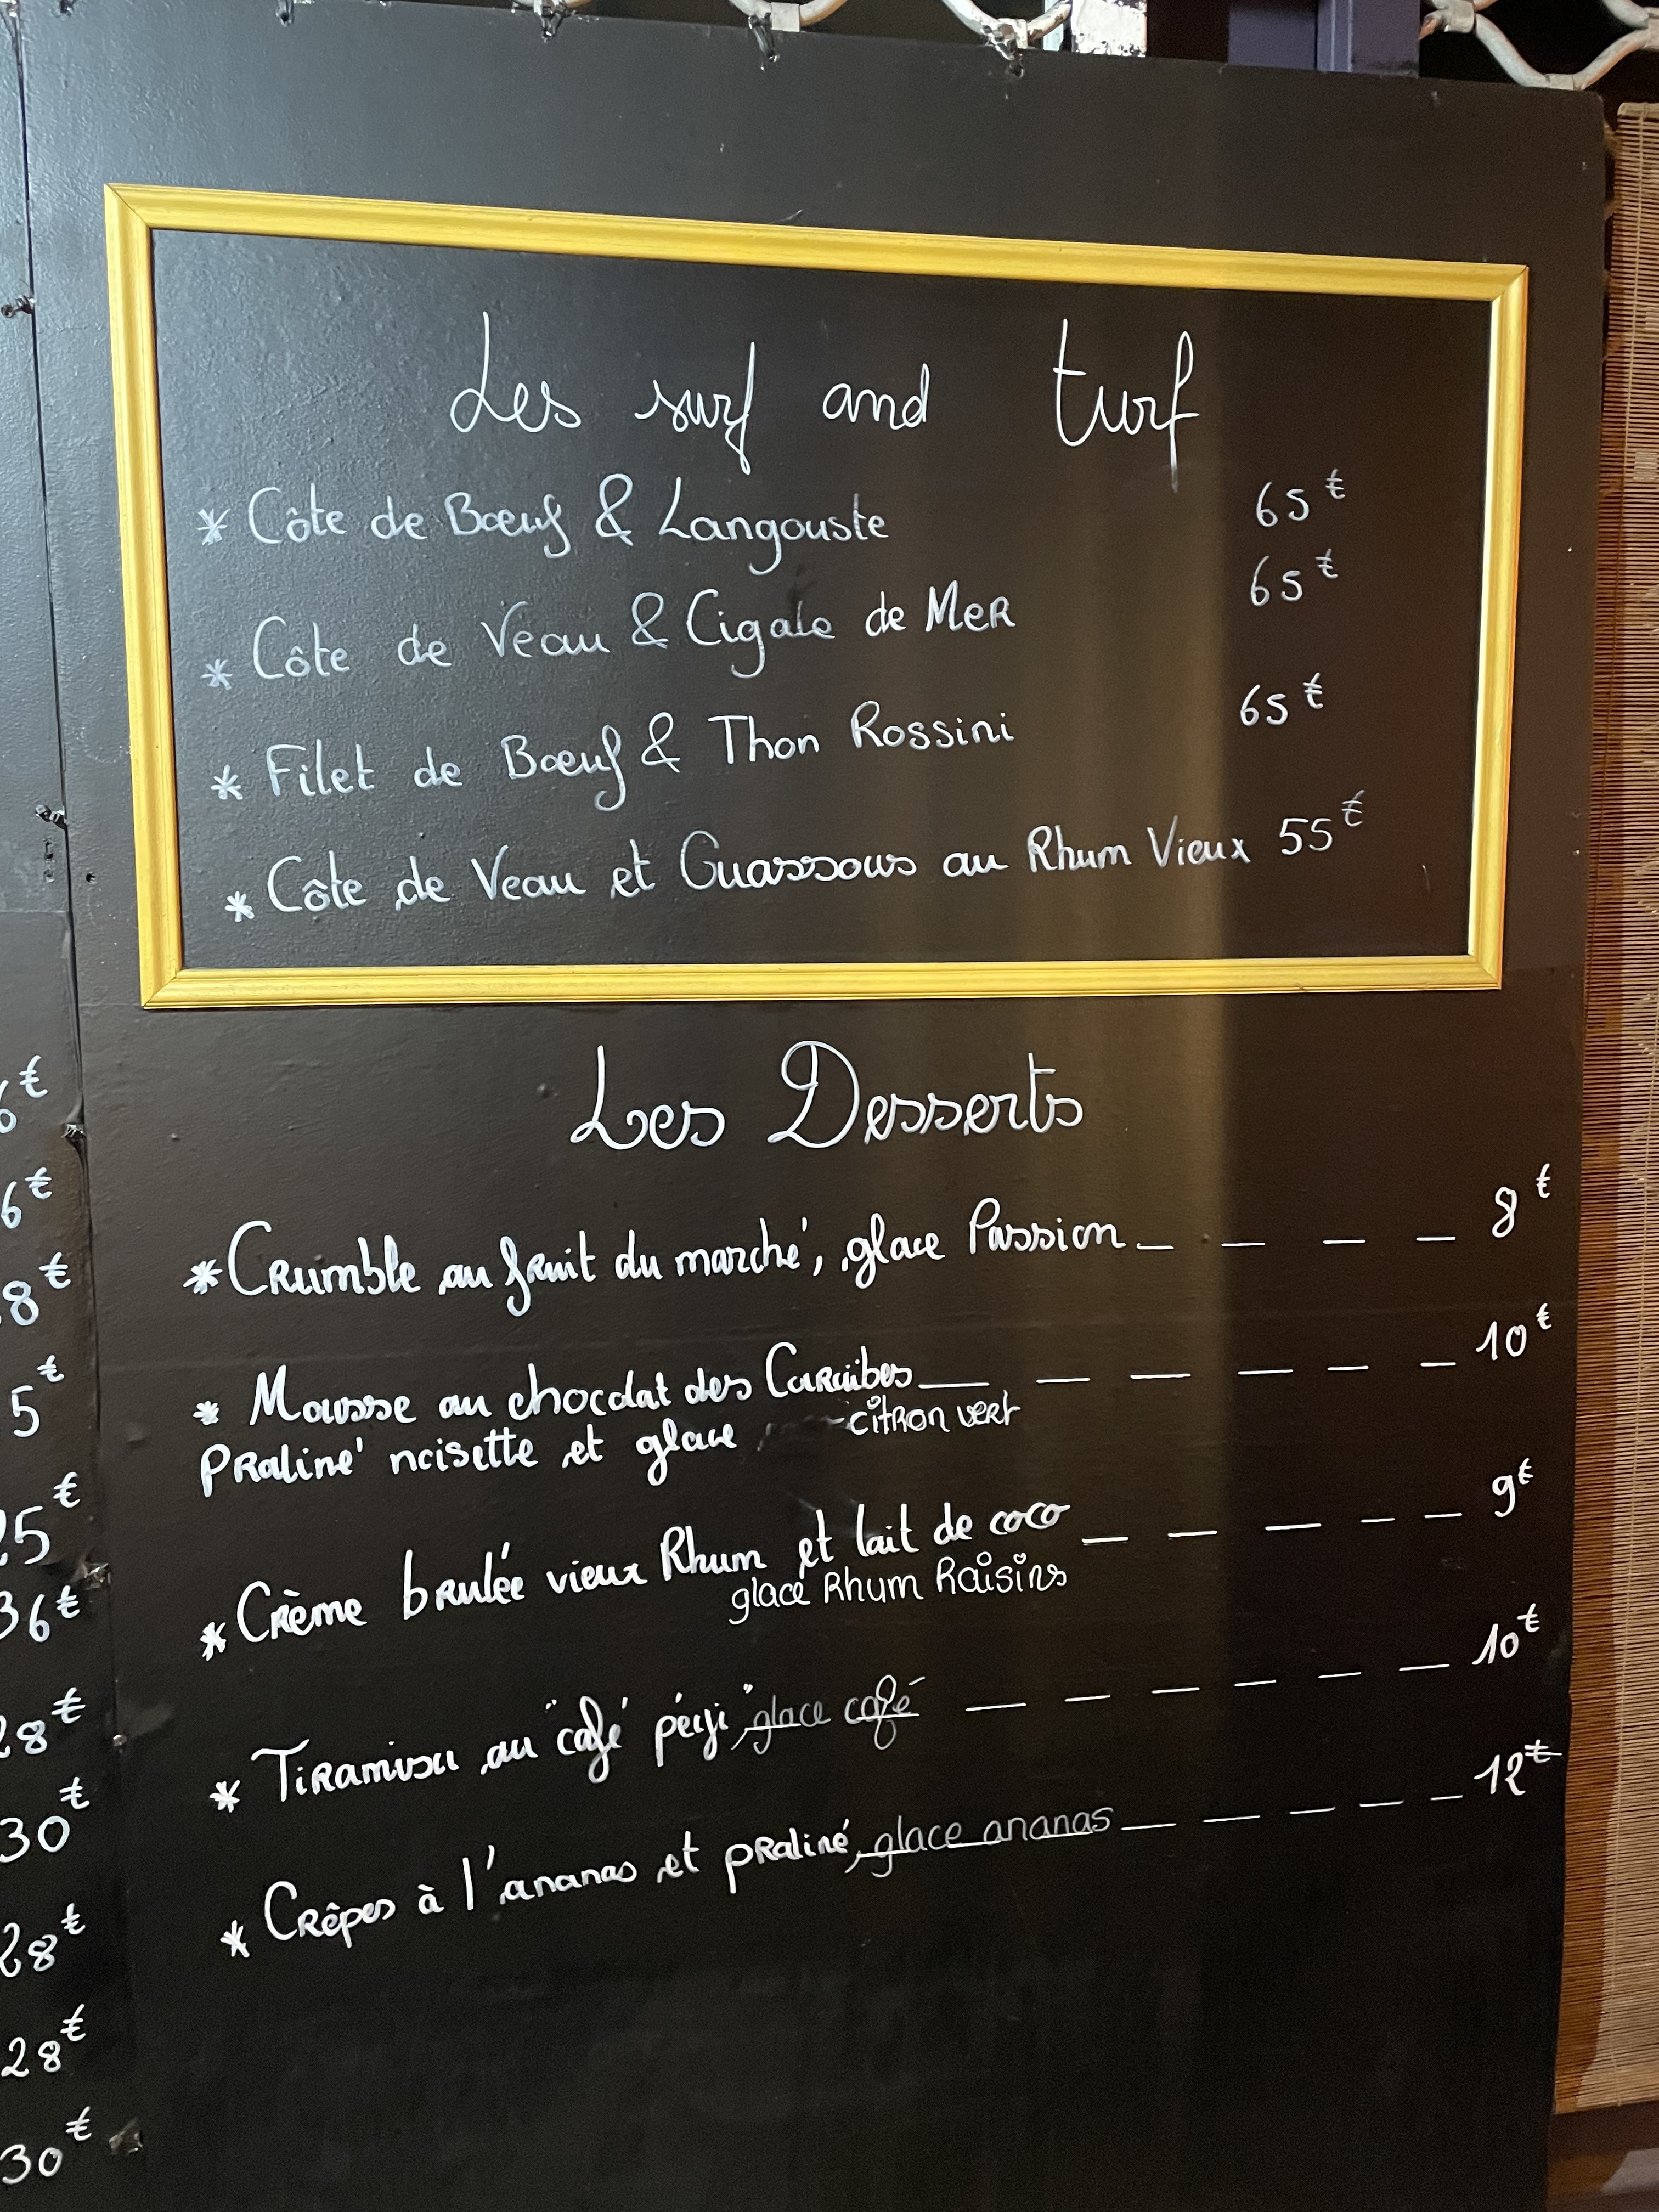 Les surf and turf
* Côte de Bœuf & Langouste 65€
* Côte de Veau & Cigale de Mer 65€
* Filet de Bœuf & Thon Rossini 65€
* Côte de Veau et Ouassous au Rhum Vieux 55€
Les Desserts
* Crumble au fruit du marché, glace Passion _ _ _ _ 8€
* Mousse au chocolat des Caraïbes _ _ _ _ _ _ 10€
Praliné noisette et glace citron vert
* Crème brulée vieux Rhum et lait de coco _ _ _ _ _ 9€
glace Rhum Raisins
* Tiramisu au "café péyi", glace café _ _ _ _ _ _ 10€
* Crêpes à l'ananas et praliné, glace ananas _ _ _ _ _ 12€
6€
6€
8€
5€
25€
36€
28€
30€
28€
28€
30€